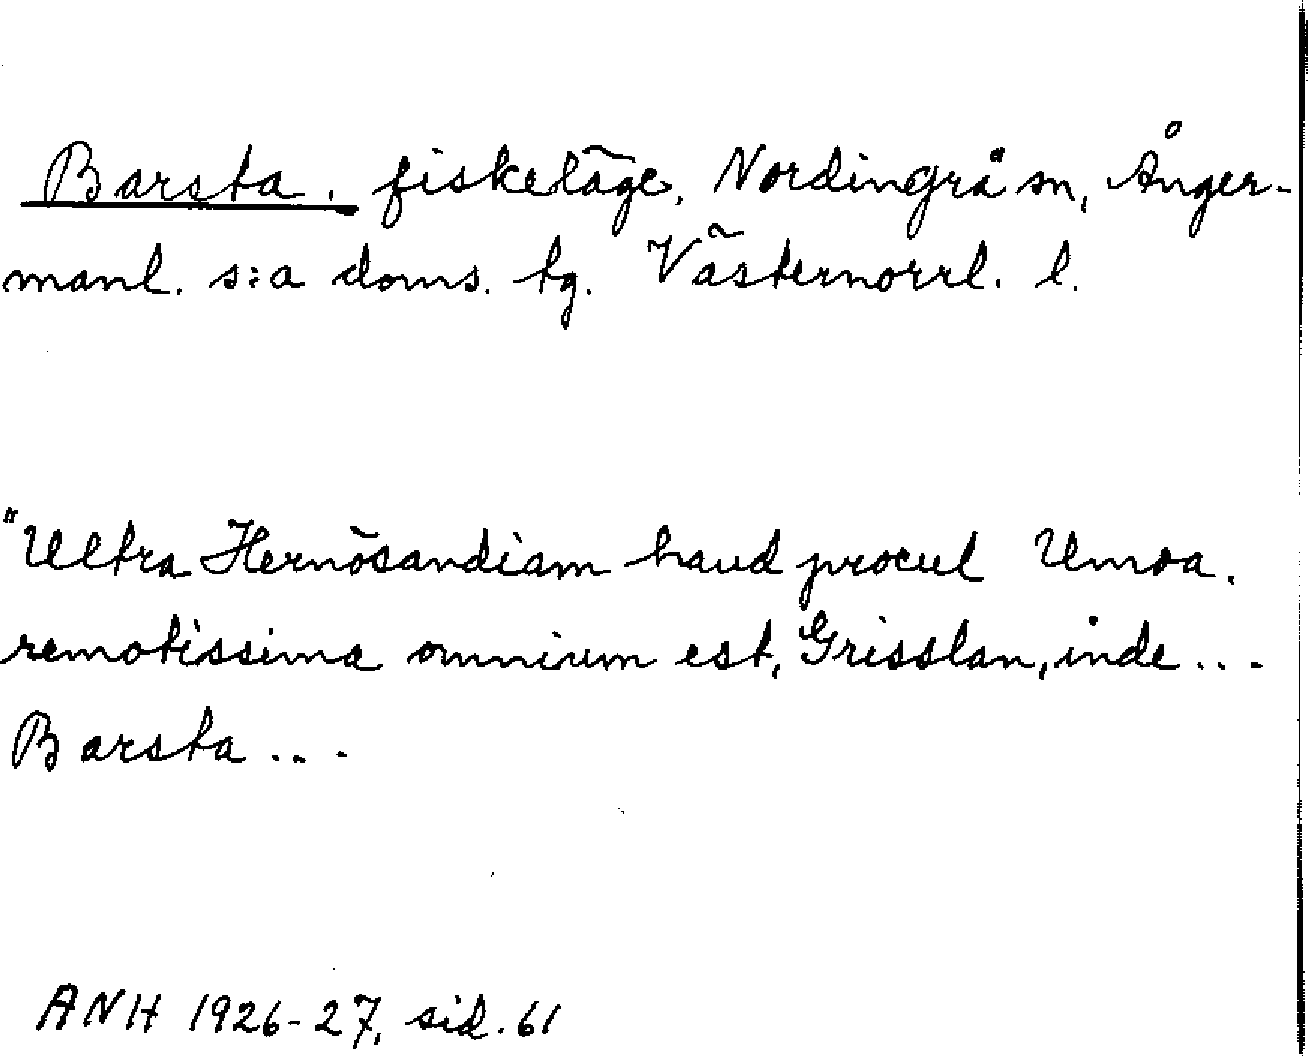 Barsta, fiskeläge, Nordingrå sn, Ånger-
manl. s:a doms. tg. Västernorrl. l.
"Ultra Hernösandiam haud procul Umoa.
remotissima omnium est, Grisslan, inde ...
Barsta ...
ANH 1926-27, sid. 61